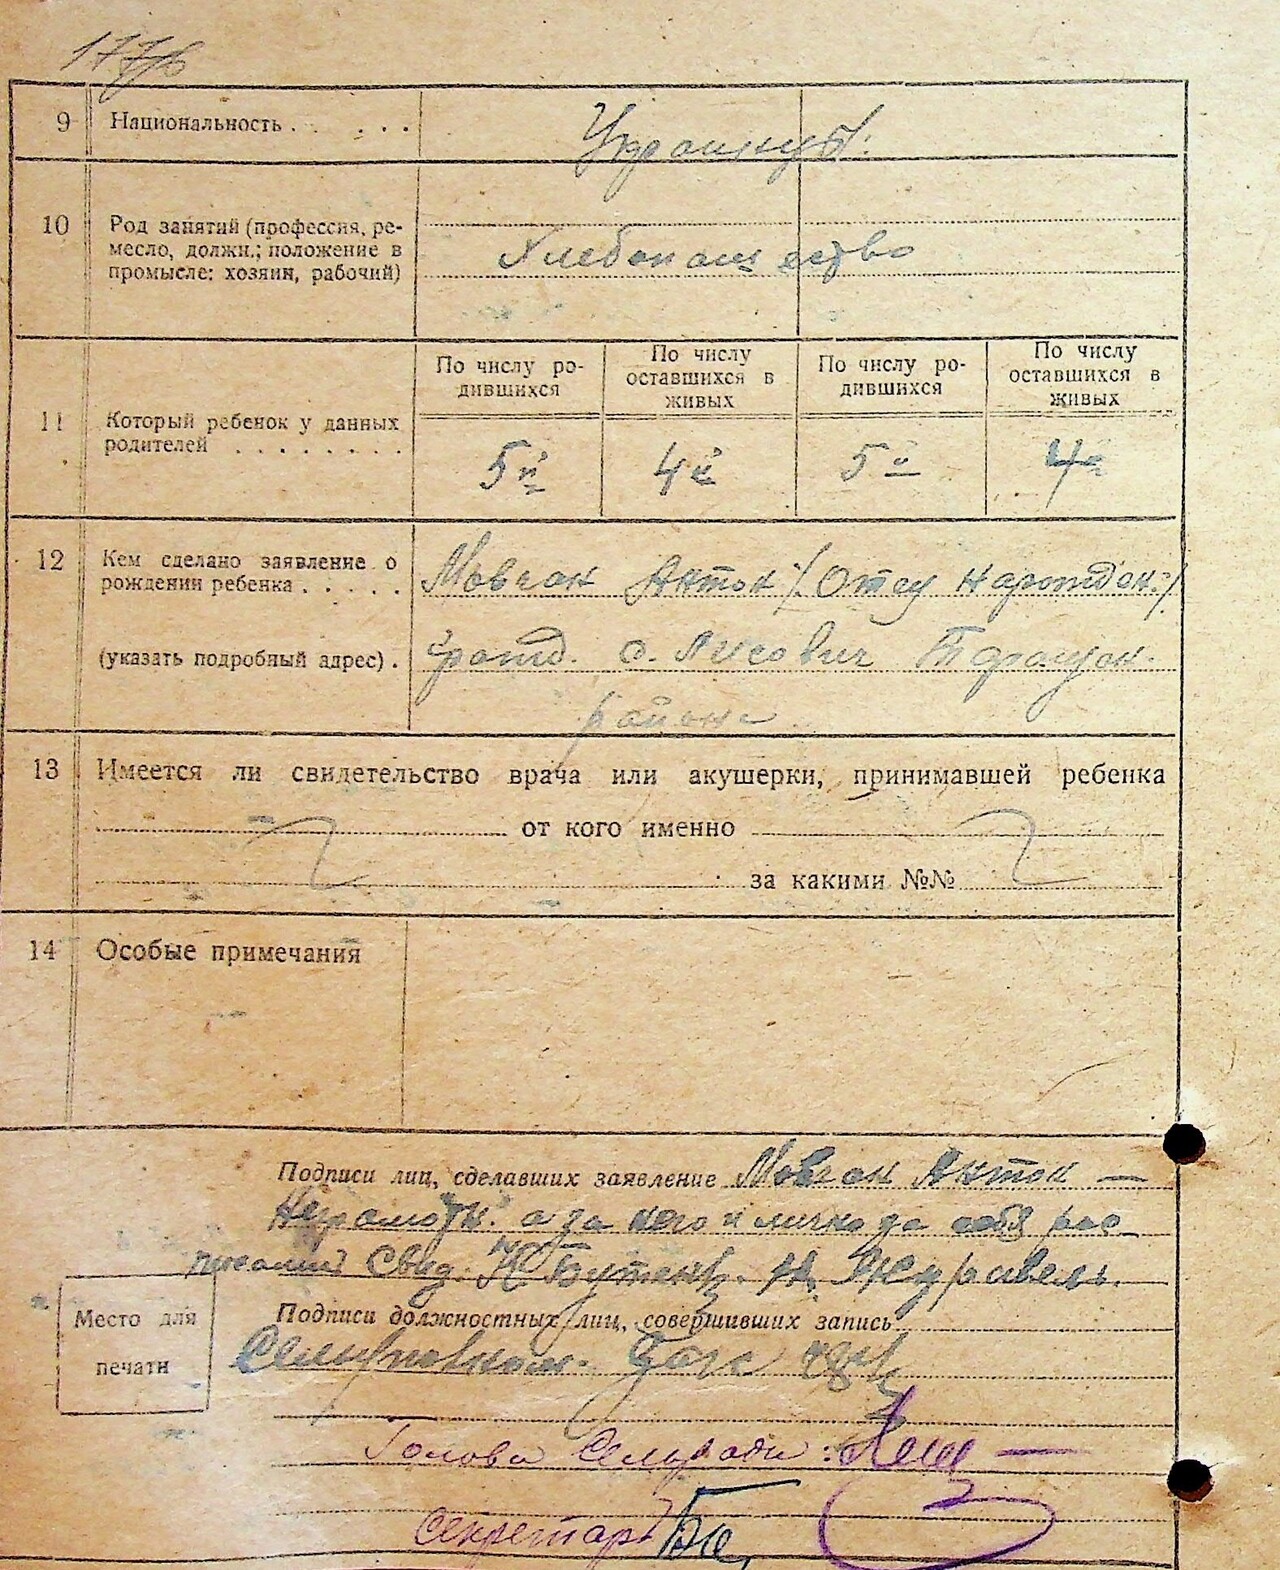 177
9 Национальность . . . . . Украинцы.
10 Род занятий (профессия, ре-
месло, должн.; положение в
промысле: хозяин, рабочий)
Хлебопашество
11 Который ребенок у данных
родителей . . . . . . . .
По числу ро-
дившихся
По числу
оставшихся в
живых
По числу ро-
дившихся
По числу
оставшихся в
живых
5й 4й 5й 4й
12 Кем сделано заявление о
рождении ребенка . . . . .
(указать подробный адрес) .
Мовчан Антон /. Отец
гражд. с. Лисович Таращан.
района
13 Имеется ли свидетельство врача или акушерки, принимавшей ребенка
от кого именно
за какими №№
14 Особые примечания
Подписи лиц, сделавших заявление Мовчан Антон —
Неграмотн. а за него и лично за себя рас
писался Свид. Н Бутенк. Журавель.
Место для
печати
Подписи должностных лиц, совершивших запись
Голова Сельради:
Секретарь